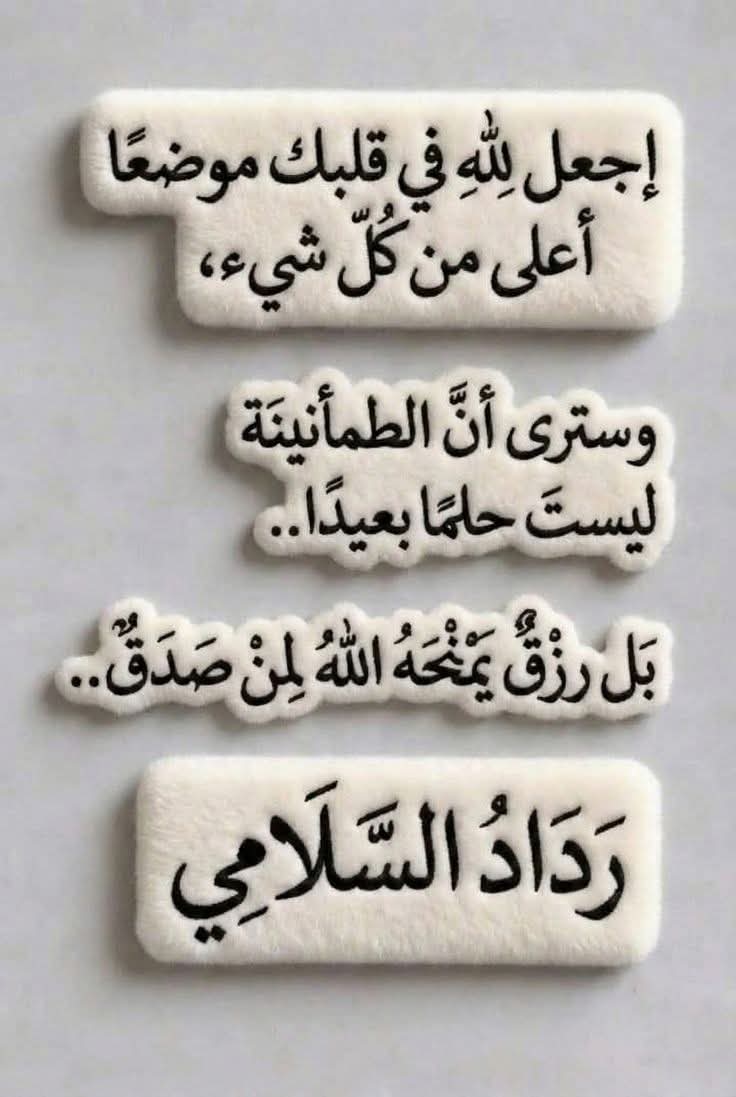 إجعل لِلّٰهِ في قلبك موضعًا
أعلى من كُلّ شيء،
وسترى أنَّ الطمأنينَة
ليستَ حلمًا بعيدًا..
بَل رزْقٌ يَمْنْحَهُ اللّٰهُ لِمنْ صَدَقٌ..
رَدَادُ السَّلَامِي